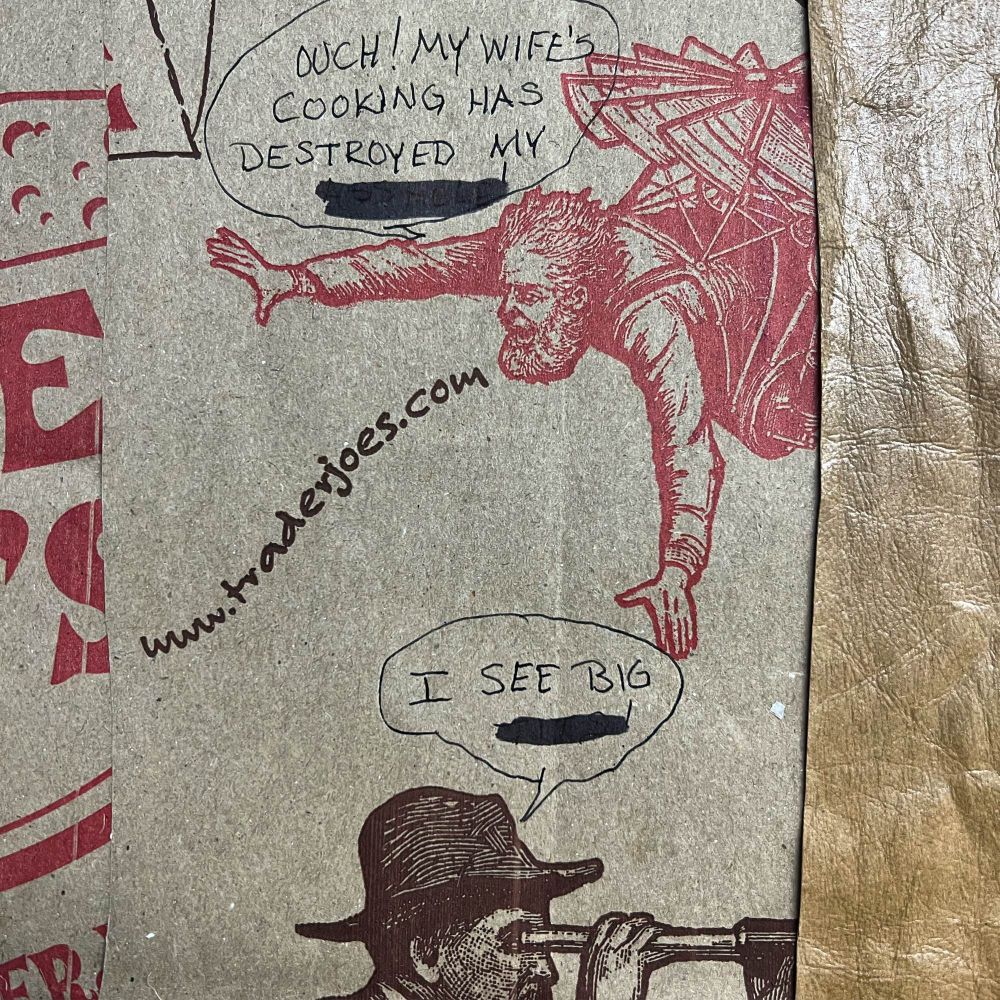 OUCH! MY WIFE'S
COOKING HAS
DESTROYED MY
www.traderjoes.com
I SEE BIG
E
S
ER